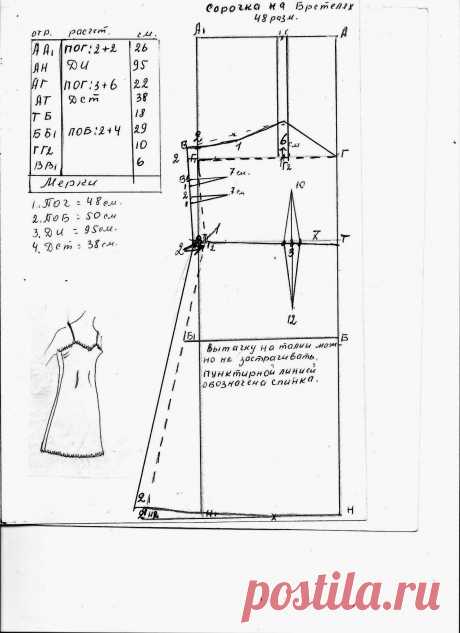 Сорочка на Бретелях
48 разм.
отр. расчет. см.
АА1 ПОГ:2+2 26
АН ДИ 95
АГ ПОГ:3+6 22
АТ Дст 38
ТБ 18
ББ1 ПОБ:2+4 29
ГГ2 10
ВВ1 6
Мерки
1. ПОГ = 48 см.
2. ПОБ = 50 см
3. ДИ = 95 см.
4. Дст = 38 см.
А1 А
2 x
В 1 6 см
2 Г1 Г2 Г
В1 7 см.
1
2 7 см
1
10
1
2 T2 3 X Т
12
Б1 Б
Вытачку на талии мож-
но не застрагивать.
Пунктирной линией
обозначена спинка.
2
2 Н2 Н1 x Н
postila.ru